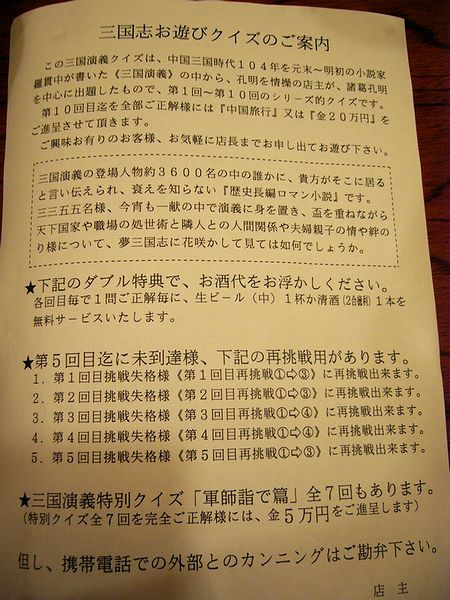 三国志お遊びクイズのご案内
この三国演義クイズは、中国三国時代１０４年を元末～明初の小説家
羅貫中が書いた《三国演義》の中から、孔明を情操の店主が、諸葛孔明
を中心に出題したもので、第１回～第１０回のシリーズ的クイズです。
第１０回目迄を全部ご正解様には『中国旅行』又は『金２０万円』を
ご進呈させて頂きます。
ご興味お有りのお客様、お気軽に店長までお申し出てお遊び下さい。
三国演義の登場人物約３６００名の中の誰かに、貴方がそこに居る
と言い伝えられ、衰えを知らない『歴史長編ロマン小説』です。
三三五五名様、今宵も一献の中で演義に身を置き、盃を重ねながら
天下国家や職場の処世術と隣人との人間関係や夫婦親子の情や絆の
り様について、夢三国志に花咲かして見ては如何でしょうか。
★下記のダブル特典で、お酒代をお浮かしください。
各回目毎で１問ご正解毎に、生ビール（中）１杯か清酒（2合徳利）１本を
無料サービスいたします。
★第５回目迄に未到達様、下記の再挑戦用があります。
１．第１回目挑戦失格様《第１回目再挑戦①⇨③》に再挑戦出来ます。
２．第２回目挑戦失格様《第２回目再挑戦①⇨③》に再挑戦出来ます。
３．第３回目挑戦失格様《第３回目再挑戦①⇨④》に再挑戦出来ます。
４．第４回目挑戦失格様《第４回目再挑戦①⇨④》に再挑戦出来ます。
５．第５回目挑戦失格様《第５回目再挑戦①⇨③》に再挑戦出来ます。
★三国演義特別クイズ「軍師詣で篇」全７回もあります。
（特別クイズ全７回を完全ご正解様には、金５万円をご進呈します）
但し、携帯電話での外部とのカンニングはご勘弁下さい。
店 主